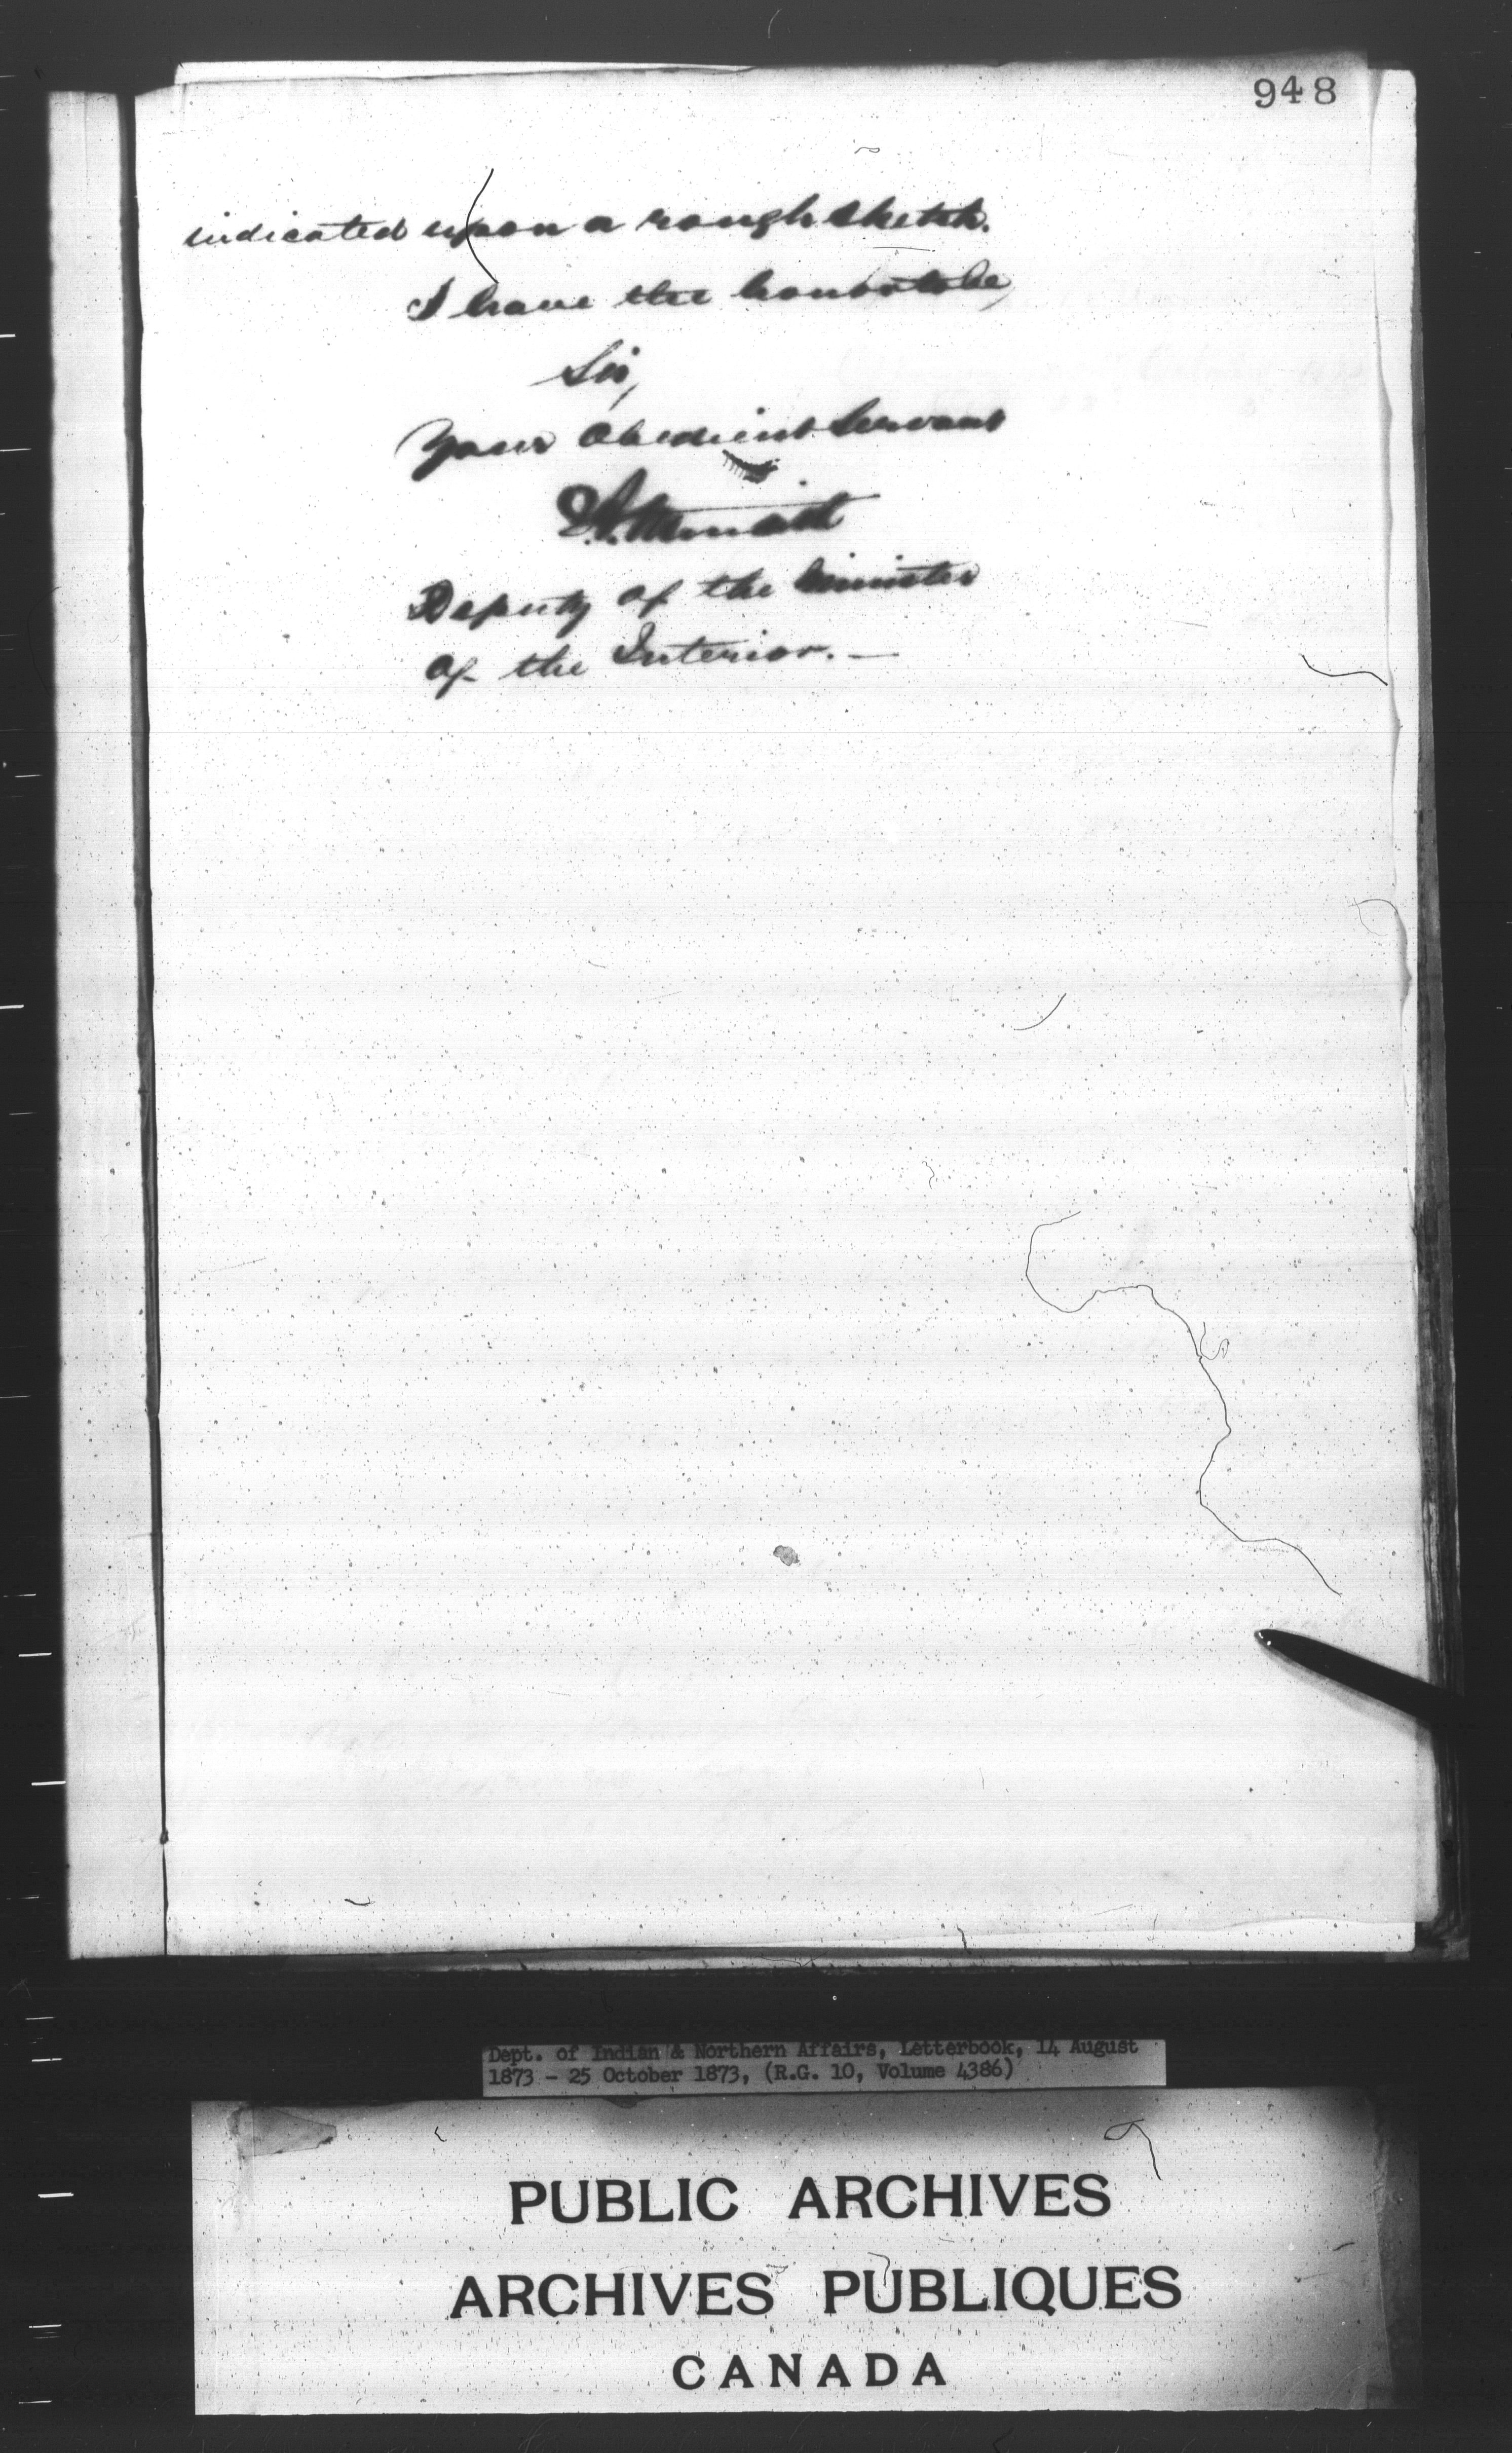 948
indicated upon a rough sketch.
I have the honor to be,
Sir,
Your Obedient Servant
Deputy of the Minister
of the Interior. —
Dept. of Indian & Northern Affairs, Letterbook, 14 August
1873 - 25 October 1873, (R.G. 10, Volume 4386)
PUBLIC ARCHIVES
ARCHIVES PUBLIQUES
CANADA